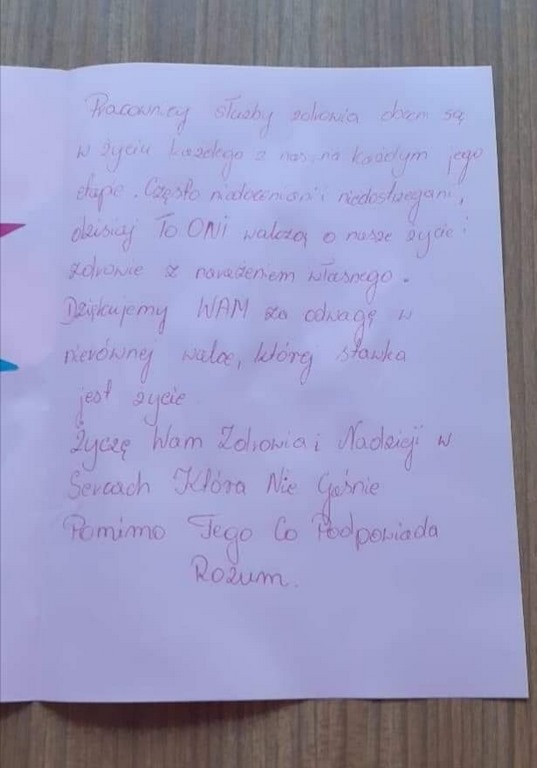 Pracownicy służby zdrowia obecni są
w życiu każdego z nas, na każdym jego
etapie. Często niedoceniani i niedostrzegani,
dzisiaj To ONI walczą o nasze życie i
zdrowie z narażeniem własnego.
Dziękujemy WAM za odwagę w
nierównej walce, której stawka
jest życie
Życzę Wam Zdrowia i Nadzieji w
Sercach Która Nie Gaśnie
Pomimo Tego Co Podpowiada
Rozum.